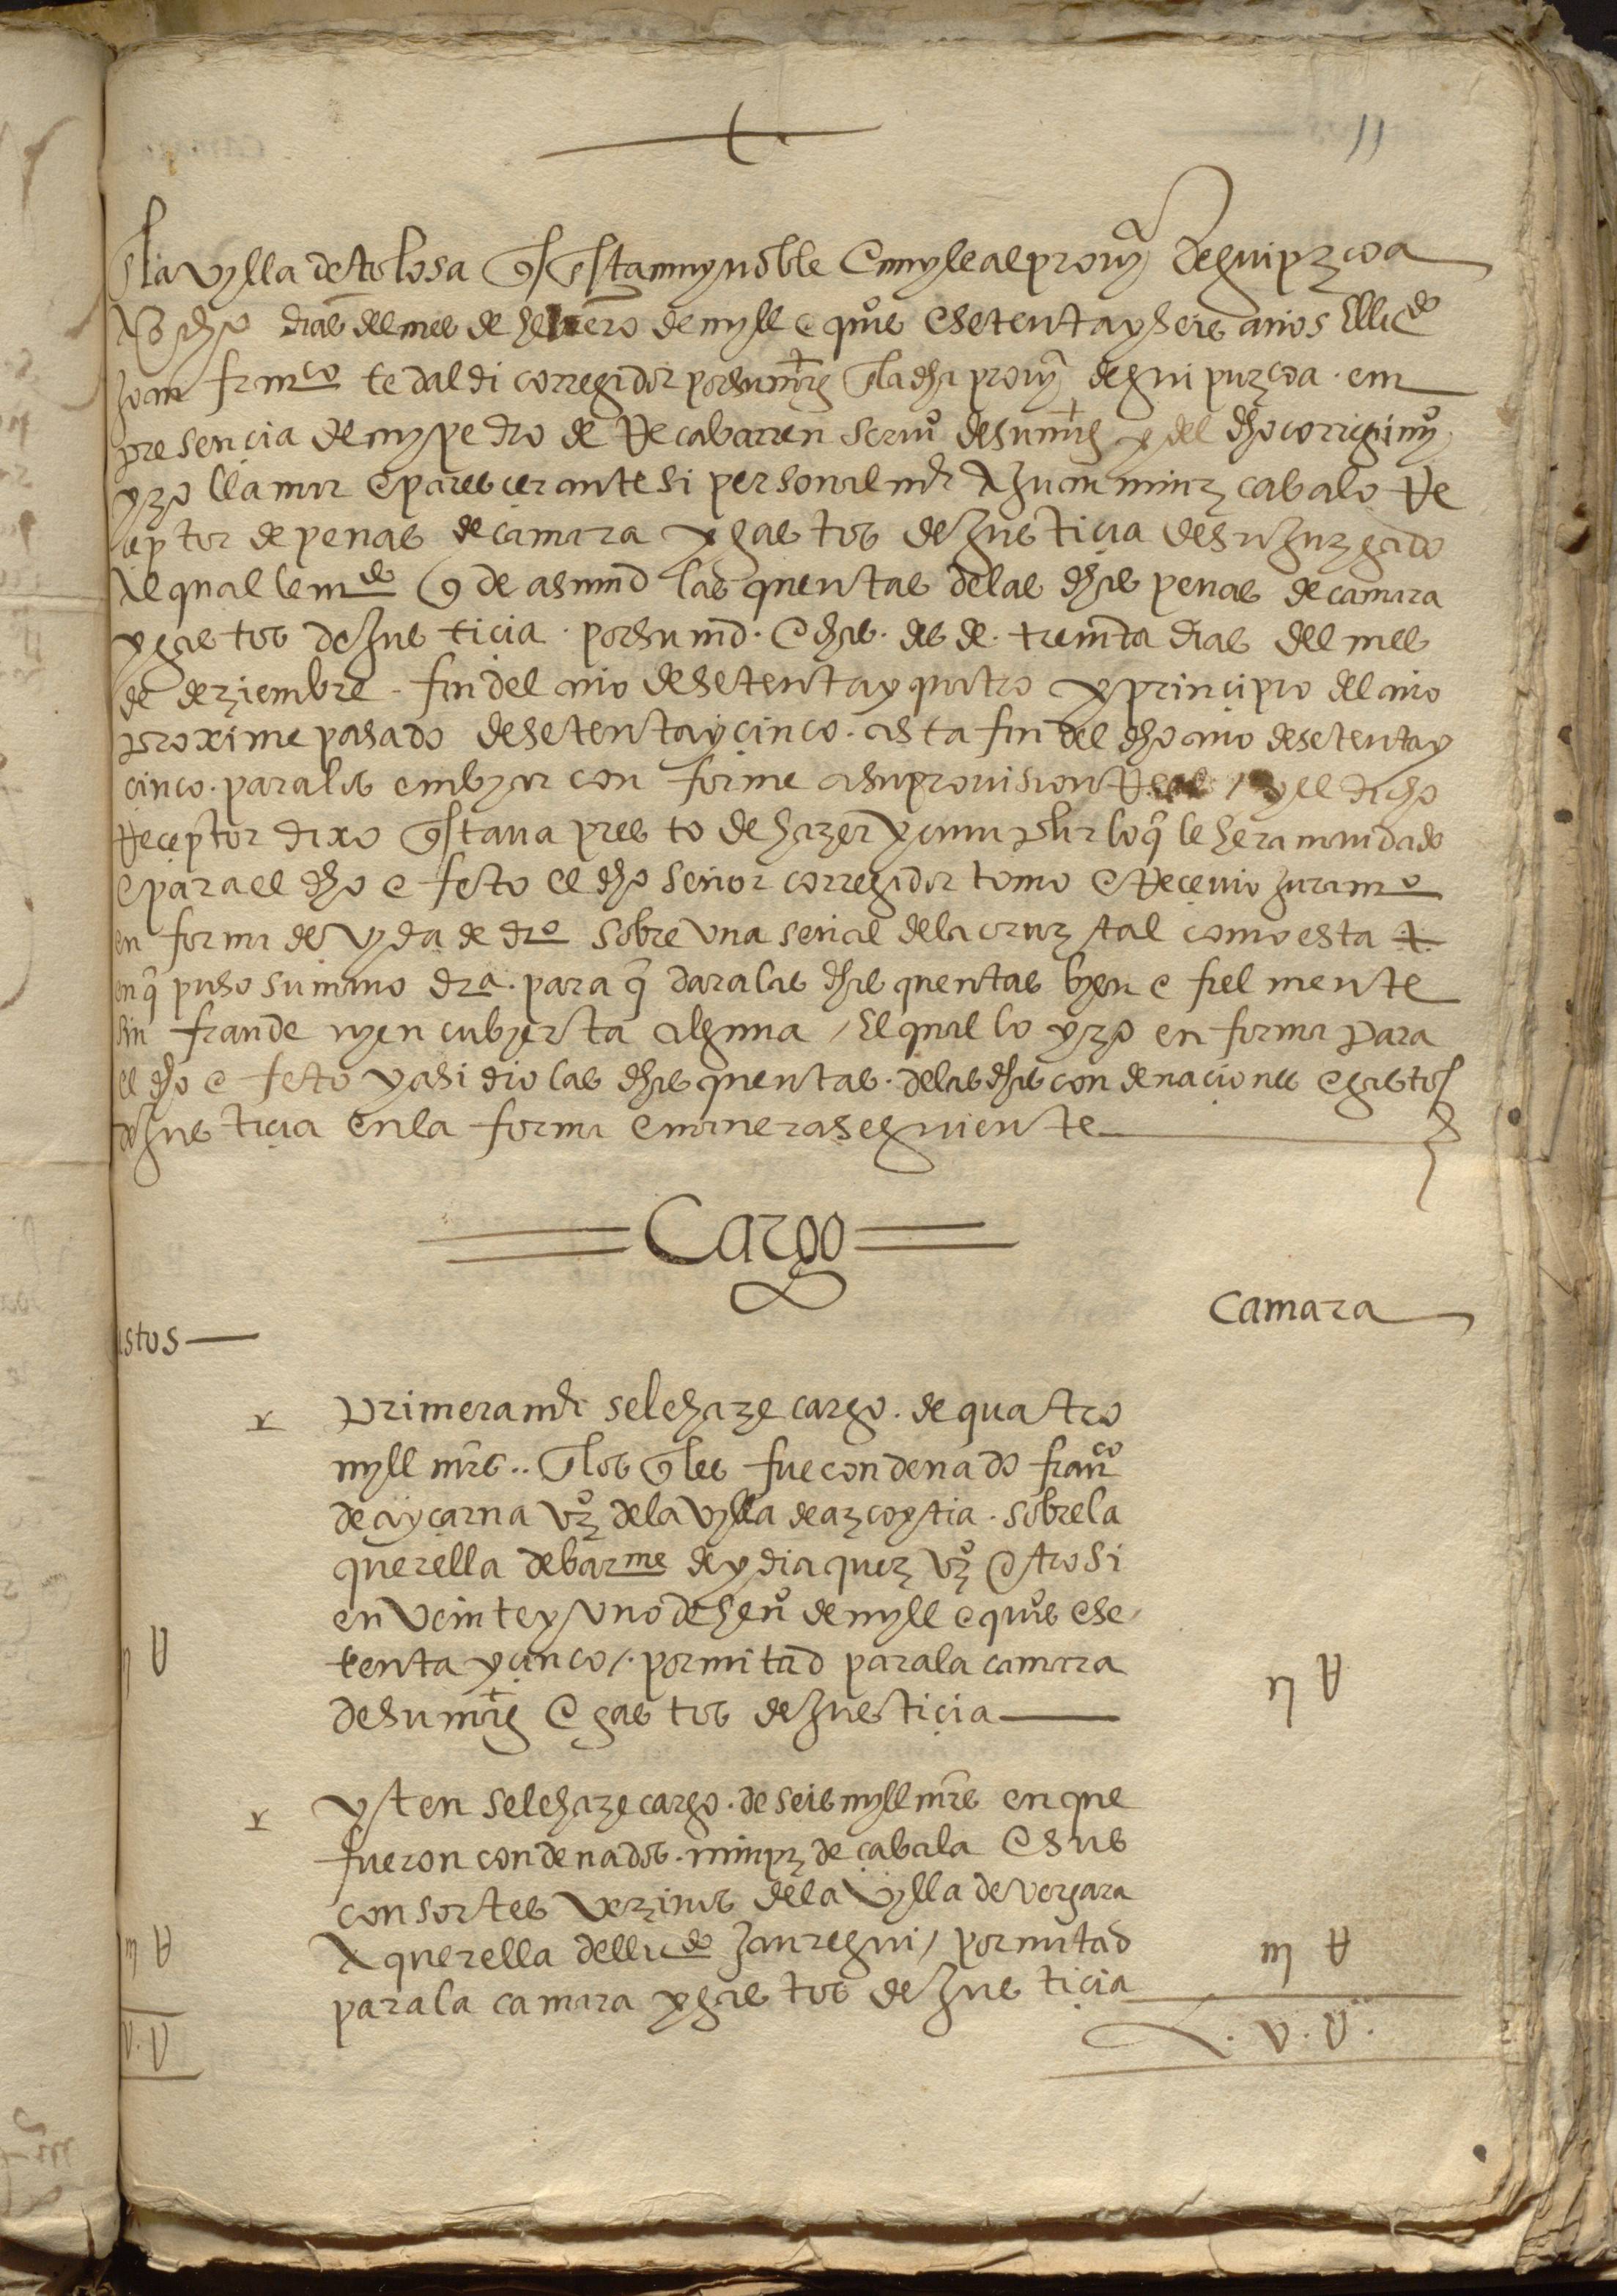 11
En la vylla de tolosa q̃s en sta muy noble e muy leal prouya de guipuzcoa
a diez ocho dias del mes de hebrero de myll e qujos e setenta y seis años El licdo
joan franco tedaldi corregidor por su mag en la dha prouya de guipuzcoa en
presencia de my pedro de Recabarren scriuo de su mag y del dho corregimyo
yzo llamar e parescer ante si personalmte a Juan minz cabalo Re
ceptor de penas de camara y gastos de Justicia de su Juzgado
Al qual le mdo q de a su md las quentas de las dhas penas de camara
y gastos de Justicia por su md e has. desde treinta dias del mes
de deziembre fin del año de setenta y quatro y principio del año
proximepasado de setenta y cinco asta fin del dho año de setenta y
cinco para las embyar conforme a su prouision Real y el dicho
Receptor dixo q̃staua presto de hazer y cumplir lo q̃ le hera mandado
e para el dho efeto el dho señor corregidor tomo e Receuio Juramo
en forma devyda de dro sobre vna señal de la cruz tal como esta +
en q̃ puso su mano dra para q̃ dara las dhas quentas byen e fielmente
sin fraude nyencubyerta alguna / El qual lo yzo en forma para
el dho efeto y asi dio las dhas quentas de las dhas condenaciones e gastos
de Justicia en la forma e manera seguiente
Cargo
Camara
astos
Primeramte se le haze cargo de quatro
myll mrs en los q̃les fue condenado franco
de aycarna vzo de la vylla de azcoytia sobre la
querella de barme de ydiaquez vzo otrosi
en veinte y vno de heno de myll e qujos e se
tenta y cinco / por mitad para la camara
de su mag e gastos de Justicia
ij U
ij U
yten se le haze cargo de seis myll mrs en que
fueron condenados min pz de cabala e sus
consortes vezinos de la vylla de vergara
A querella del licdo Jauregui / por mitad
para la camara y gastos de Justicia
iij U
iij U
V. U
V. U.